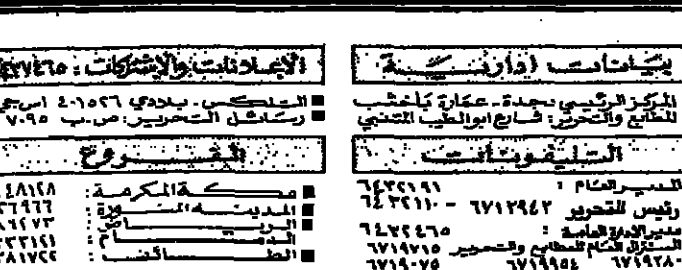 بيانات ادارية
المركز الرئيسي بجدة - عمارة باخشب
المطابع والتحرير: شارع ابوالطيب المتنبي
التليفونات
المدير العام : ٦٤٣٢١٩١
رئيس التحرير ٦٧١٢٩٤٢ - ٦٤٣٢١١٠
مدير الادارة العامة : ٦٤٣٢٤٦٥
السنترال العام للمطابع والتحرير ٦٧١٩٧١٥
٦٧١٩٢٨٠ ٦٧١٩٩٥٤ ٦٧١٩٠٧٥
الإعلانات والإشتراكات :
■ التلكس . بلادي ٤٠١٥٢٦ اس جي
■ رسائل التحرير: ص.ب ٧٠٩٥
الفروع
■ مكة المكرمة :
■ المدينة المنورة :
■ الرياض :
■ الدمام :
■ الطائف :